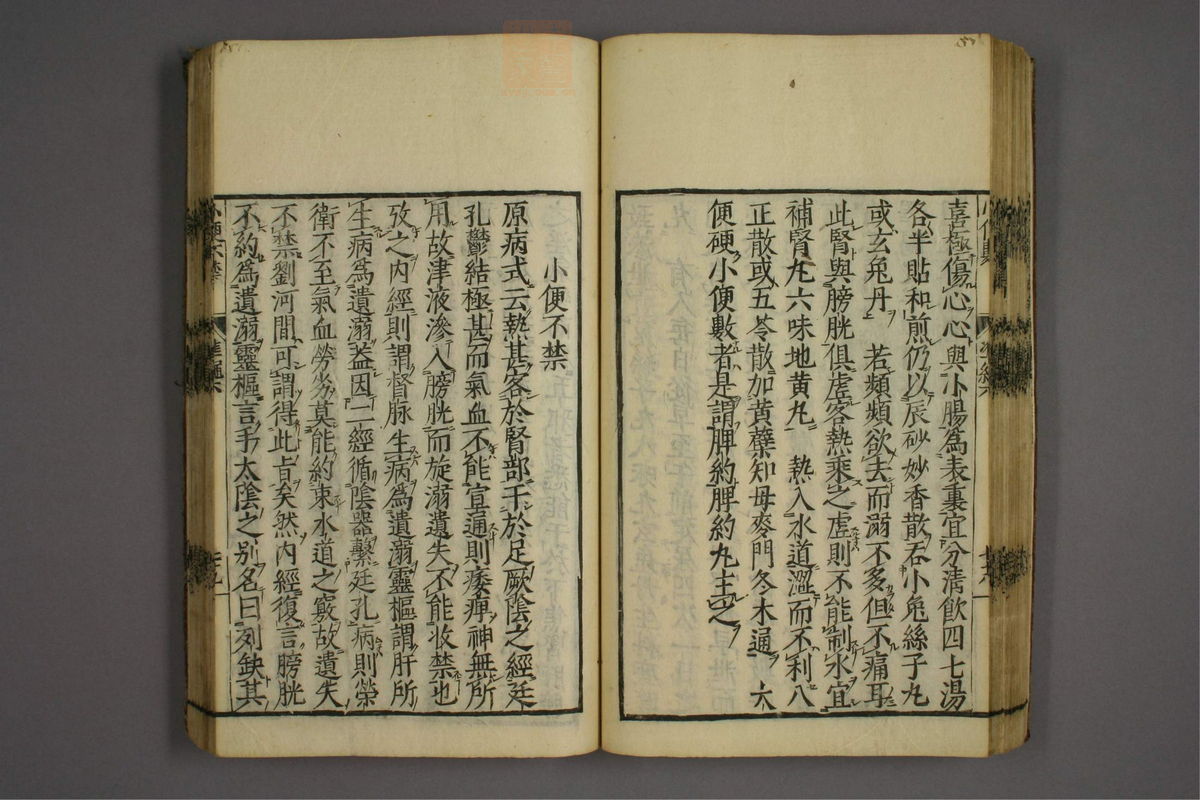 喜極傷心心與小腸為表裏宜分清飲四七湯
各半貼和煎仍以辰砂妙香散吞小兔絲子丸
或玄兔丹　若頻頻欲去而溺不多但不痛耳
此腎與膀胱俱虛客熱乘之虛則不能制水宜
補腎丸六味地黃丸　熱入水道澀而不利八
正散或五苓散加黃蘗知母麥門冬木通　大
便硬小便數者是謂脾約脾約丸主之
小便不禁
原病式云熱甚客於腎部干於足厥陰之經廷
孔鬱結極甚而氣血不能宣通則痿痺神無所
用故津液滲入膀胱而旋溺遺失不能收禁也
攷之內經則謂督脉生病為遺溺靈樞謂肝所
生病為遺溺蓋因二經循陰器繫廷孔病則榮
衛不至氣血勞劣莫能約束水道之竅故遺失
不禁劉河間可謂得此旨矣然內經復言膀胱
不約為遺溺靈樞言手太陰之別名曰列缺其